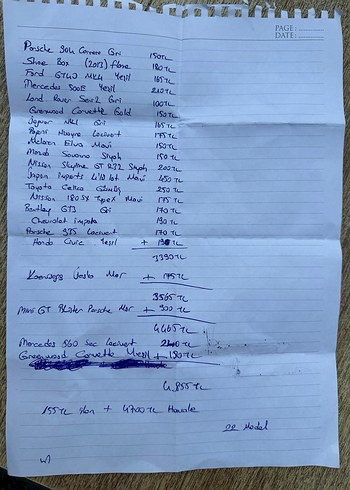 PAGE:
DATE:
Porsche 904 Carrera Gri 150TL
Shoe Box (2013) flame 180TL
Ford GT40 MK4 Yeşil 165TL
Mercedes 500E Yeşil 220TL
Land Rover Seri2 Gri 100TL
Greenwood Corvette Gold 150TL
Jaguar MK1 Gri 165TL
Pagani Huayra Lacivert 175TL
Mclaren Elva Mavi 150TL
Mazda Savanna Siyah 150TL
Nissan Skyline GT R32 Siyah 200TL
Japan imports 4'lü lot Mavi 450TL
Toyota Celica Gümüş 250TL
Nissan 180SX Type X Mavi 175TL
Bentley GT3 Gri 170TL
Chevrolet impala 190TL
Porsche 935 Lacivert 170TL
Honda Civic Yeşil + TL
3390TL
Mor + 175TL
3565TL
Mini GT Blister Porsche Mor + 900TL
4465TL
Mercedes 560 sec Lacivert 240TL
Greenwood Corvette Yeşil + 150TL
4.855TL
155TL + 4700TL Havale
22 Model